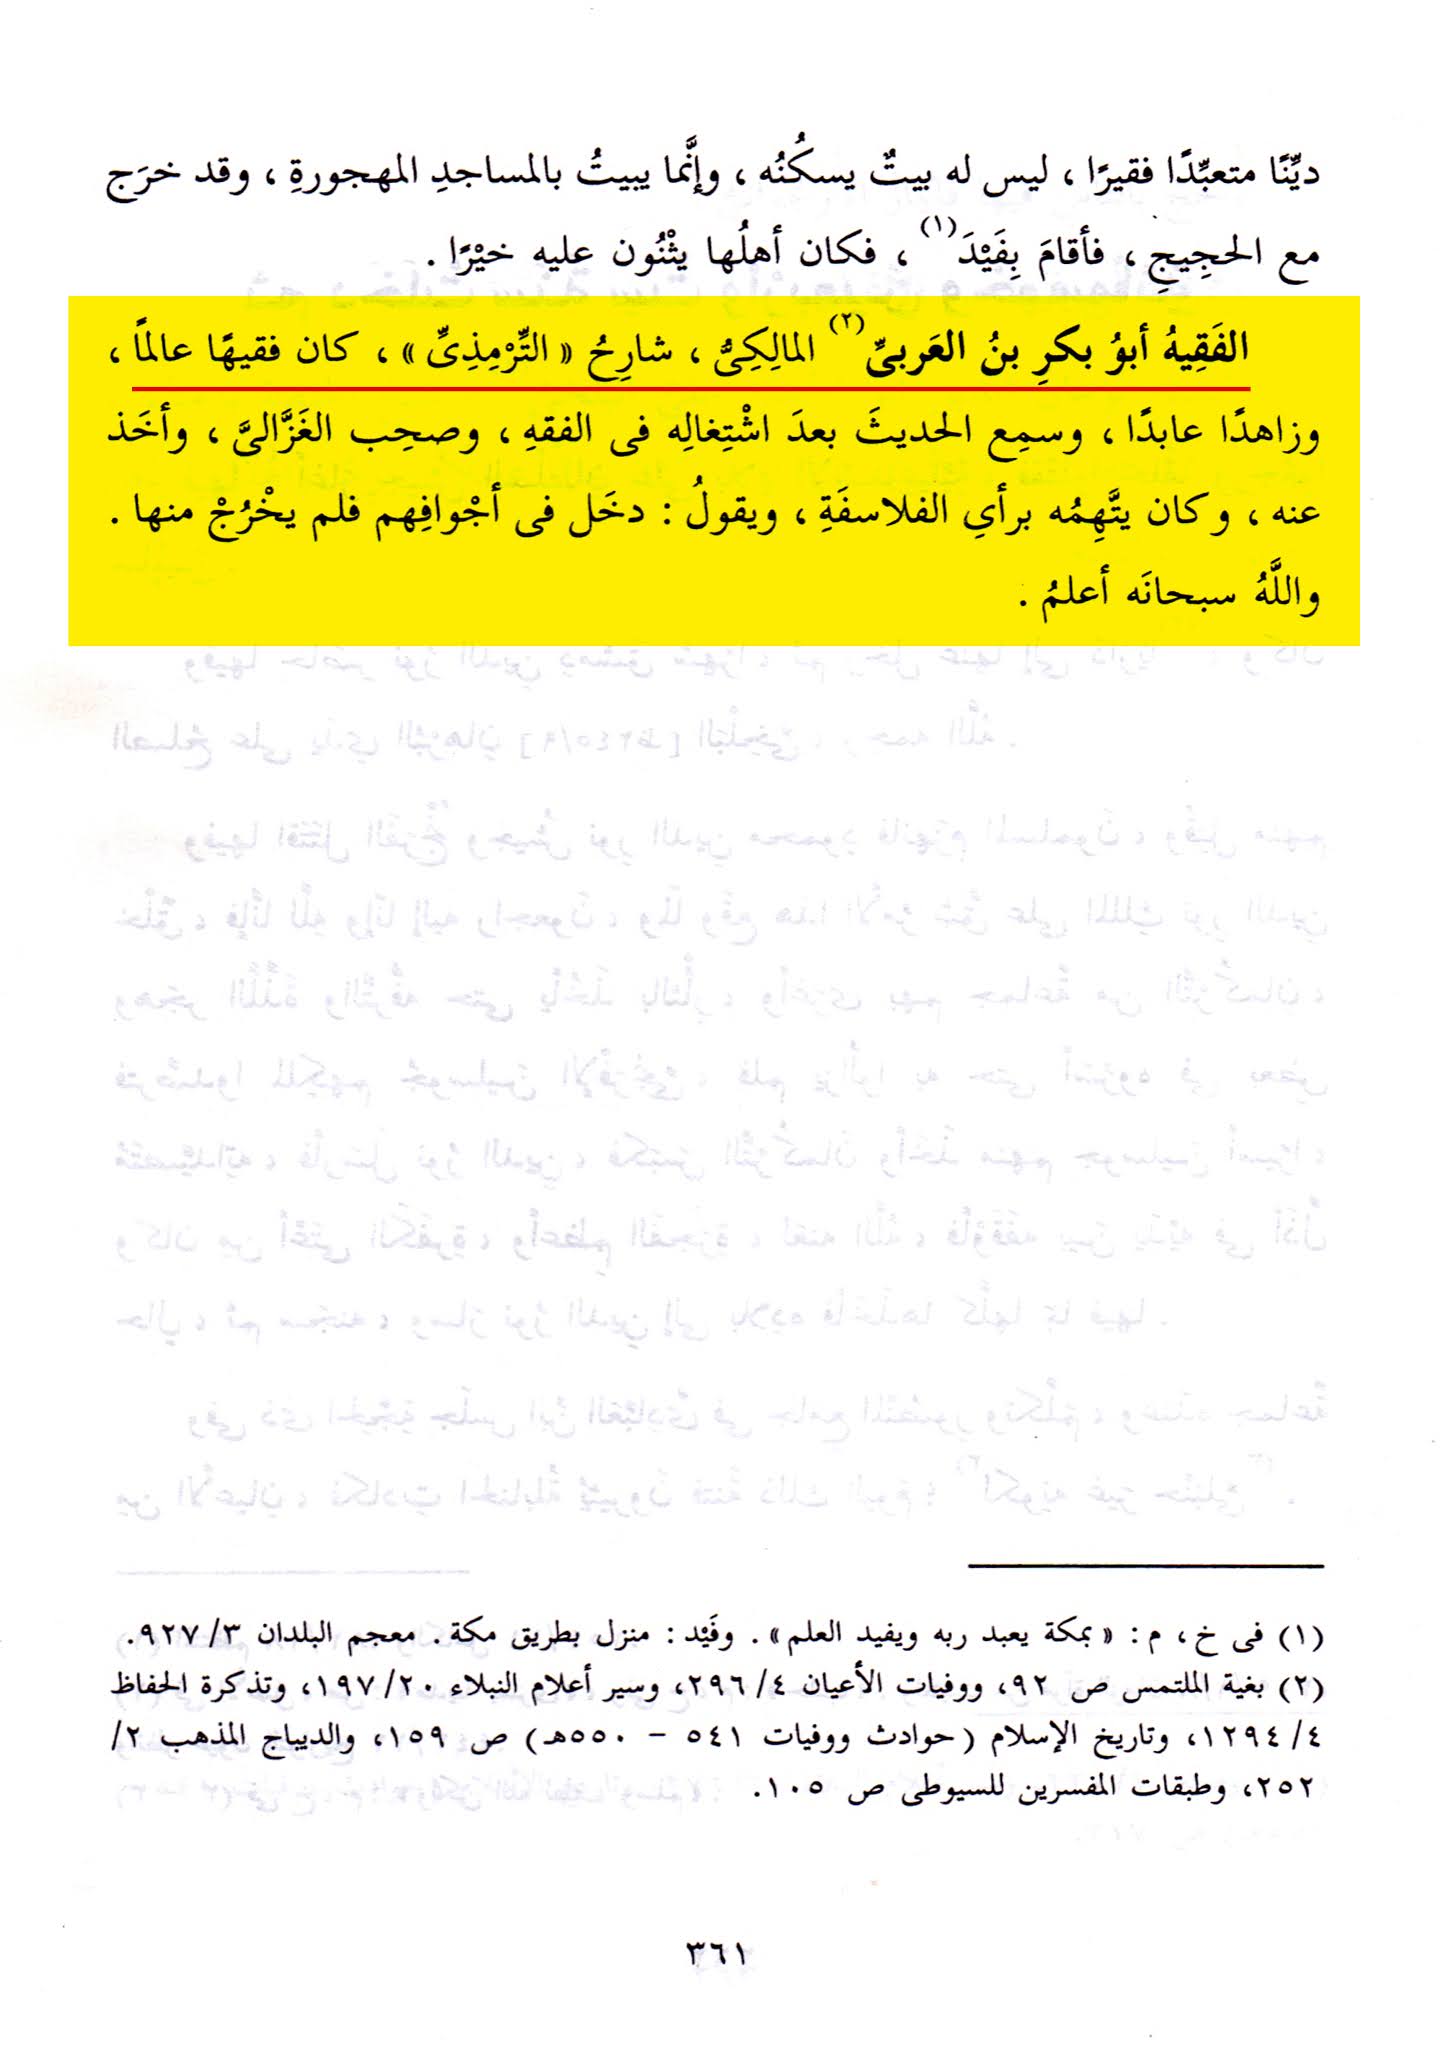 ديِّنًا متعبِّدًا فقيرًا ، ليس له بيتٌ يسكُنُه ، وإنَّما يبيتُ بالمساجدِ المهجورةِ ، وقد خرَج
مع الحجِيجِ ، فأقامَ بِفَيْدَ(١) ، فكان أهلُها يثْنُون عليه خيْرًا .
الفَقِيهُ أبوُ بكرِ بنُ العَربىِّ(٢) المالِكِىُّ ، شارِحُ « التِّرْمِذِىِّ » ، كان فقيهًا عالماً ،
وزاهدًا عابدًا ، وسمِع الحديثَ بعدَ اشْتِغالِه فى الفقهِ ، وصحِب الغَزَّالىَّ ، وأخَذ
عنه ، وكان يتَّهِمُه برأيِ الفلاسفَةِ ، ويقولُ : دخَل فى أجْوافِهم فلم يخْرُجْ منها .
واللَّهُ سبحانَه أعلمُ .
(١) فى خ ، م : « بمكة يعبد ربه ويفيد العلم » . وفَيْد : منزل بطريق مكة . معجم البلدان ٣/ ٩٢٧.
(٢) بغية الملتمس ص ٩٢، ووفيات الأعيان ٤/ ٢٩٦، وسير أعلام النبلاء ٢٠/ ١٩٧، وتذكرة الحفاظ
٤/ ١٢٩٤، وتاريخ الإسلام (حوادث ووفيات ٥٤١ – ٥٥٠هـ) ص ١٥٩، والديباج المذهب ٢/
٢٥٢، وطبقات المفسرين للسيوطى ص ١٠٥.
٣٦١